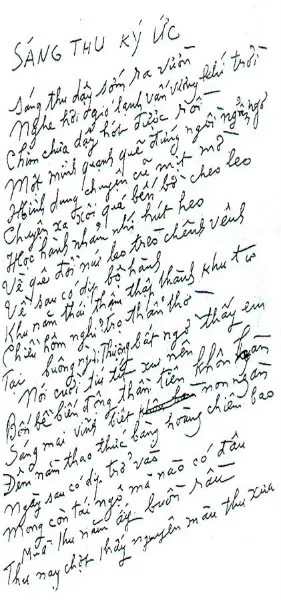 SÁNG THU KÝ ỨC
Sáng thu dậy sớm ra vườn
Nghe hơi gió lạnh vấn vương khí trời
Chim chưa dậy hót được rồi
Một mình quạnh quẽ đứng ngồi ngẩn ngơ
Hình dung chuyện cũ mịt mờ
Chuyện xa xôi quá bến bờ cheo leo
Học hành nhàn nhã hút heo
Về quê đồi núi leo trèo chênh vênh
Về sau có dịp bộ hành
Khu năm thái thậm thấy thành khu tư
Chiều hôm nghỉ trọ thẩn thơ
Tai buông ngùi Thường bất ngờ thấy em
Nói cười tíu tít xư nên
Bốn bề biển động thần tiên khôn hàn
Sáng mai vĩnh biệt non ngàn
Đêm nằm thao thức bàng hoàng chiêm bao
Ngày sau có dịp trở vào
Mong còn tái ngộ mà nào có đâu
Mùa thu năm ấy buồn rầu
Thu nay chợt thấy nguyên màu thu xưa